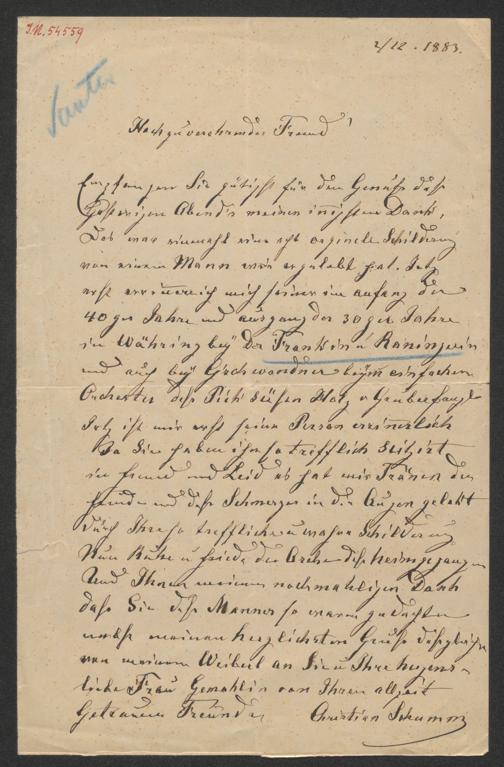 I.N. 54559
2/12 . 1883.
Hochzuverehrender Freund!
Empfangen Sie gütigst für den Genuss dess
gestrigen Abend's meinen innigsten Dank,
Das war einmahl eine echt orginele Schilderung
von einem Mann wie er gelebt hat. Jetz
erst erinnere ich mich seiner im anfang der
40ger Jahre und ausgang der 30ger Jahre
in Währing bey der Frank in u Raninger in
und auch bey Gschwandner beym einfachen
Orchester dess Pick süssen Holz u Gruber
Jetz ist mir erst seine Person errinerlich
Ja Sie haben ihn so trefflich skizirt
in Freud und Leid es hat mir Tränen der
Freude und dess Schmerzes in die Augen gelockt
durch Ihre so treffliche u wahre Schilderung
Nun Ruhe u Friede der Asche dess heimgegangen
Und Ihnen meinen nochmahligen Dank
dass Sie dess Mannes so warm gedachten
nebst meinen herzlichsten Gruss dessgleichen
von meinem Weiberl an Sie u Ihre herzens-
liebe Frau Gemahlin von Ihren allzeit
Getreuen Freunde Christian Schumm